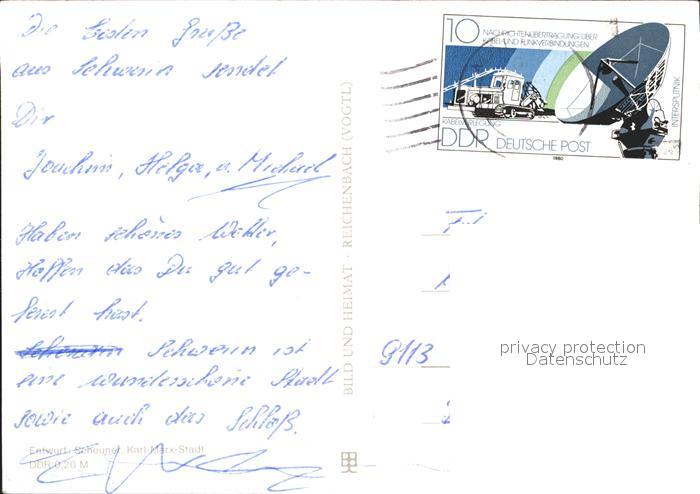 Die besten Grüße
aus Schwerin sendet
Dir
Joachim, Helga, u. Michael
Haben schönes Wetter,
Hoffen das Du gut ge-
reist hast.
Schwerin ist
eine wunderschöne Stadt
sowie auch das Schloß.
Entwurf: Scheuner, Karl-Marx-Stadt
DDR 0,20 M
BILD UND HEIMAT · REICHENBACH (VOGTL)
10
NACHRICHTENÜBERTRAGUNG ÜBER
KABEL-UND FUNKVERBINDUNGEN
KABELVERLEGUNG
INTERSPUTNIK
DDR DEUTSCHE POST
1980
9113
privacy protection
Datenschutz